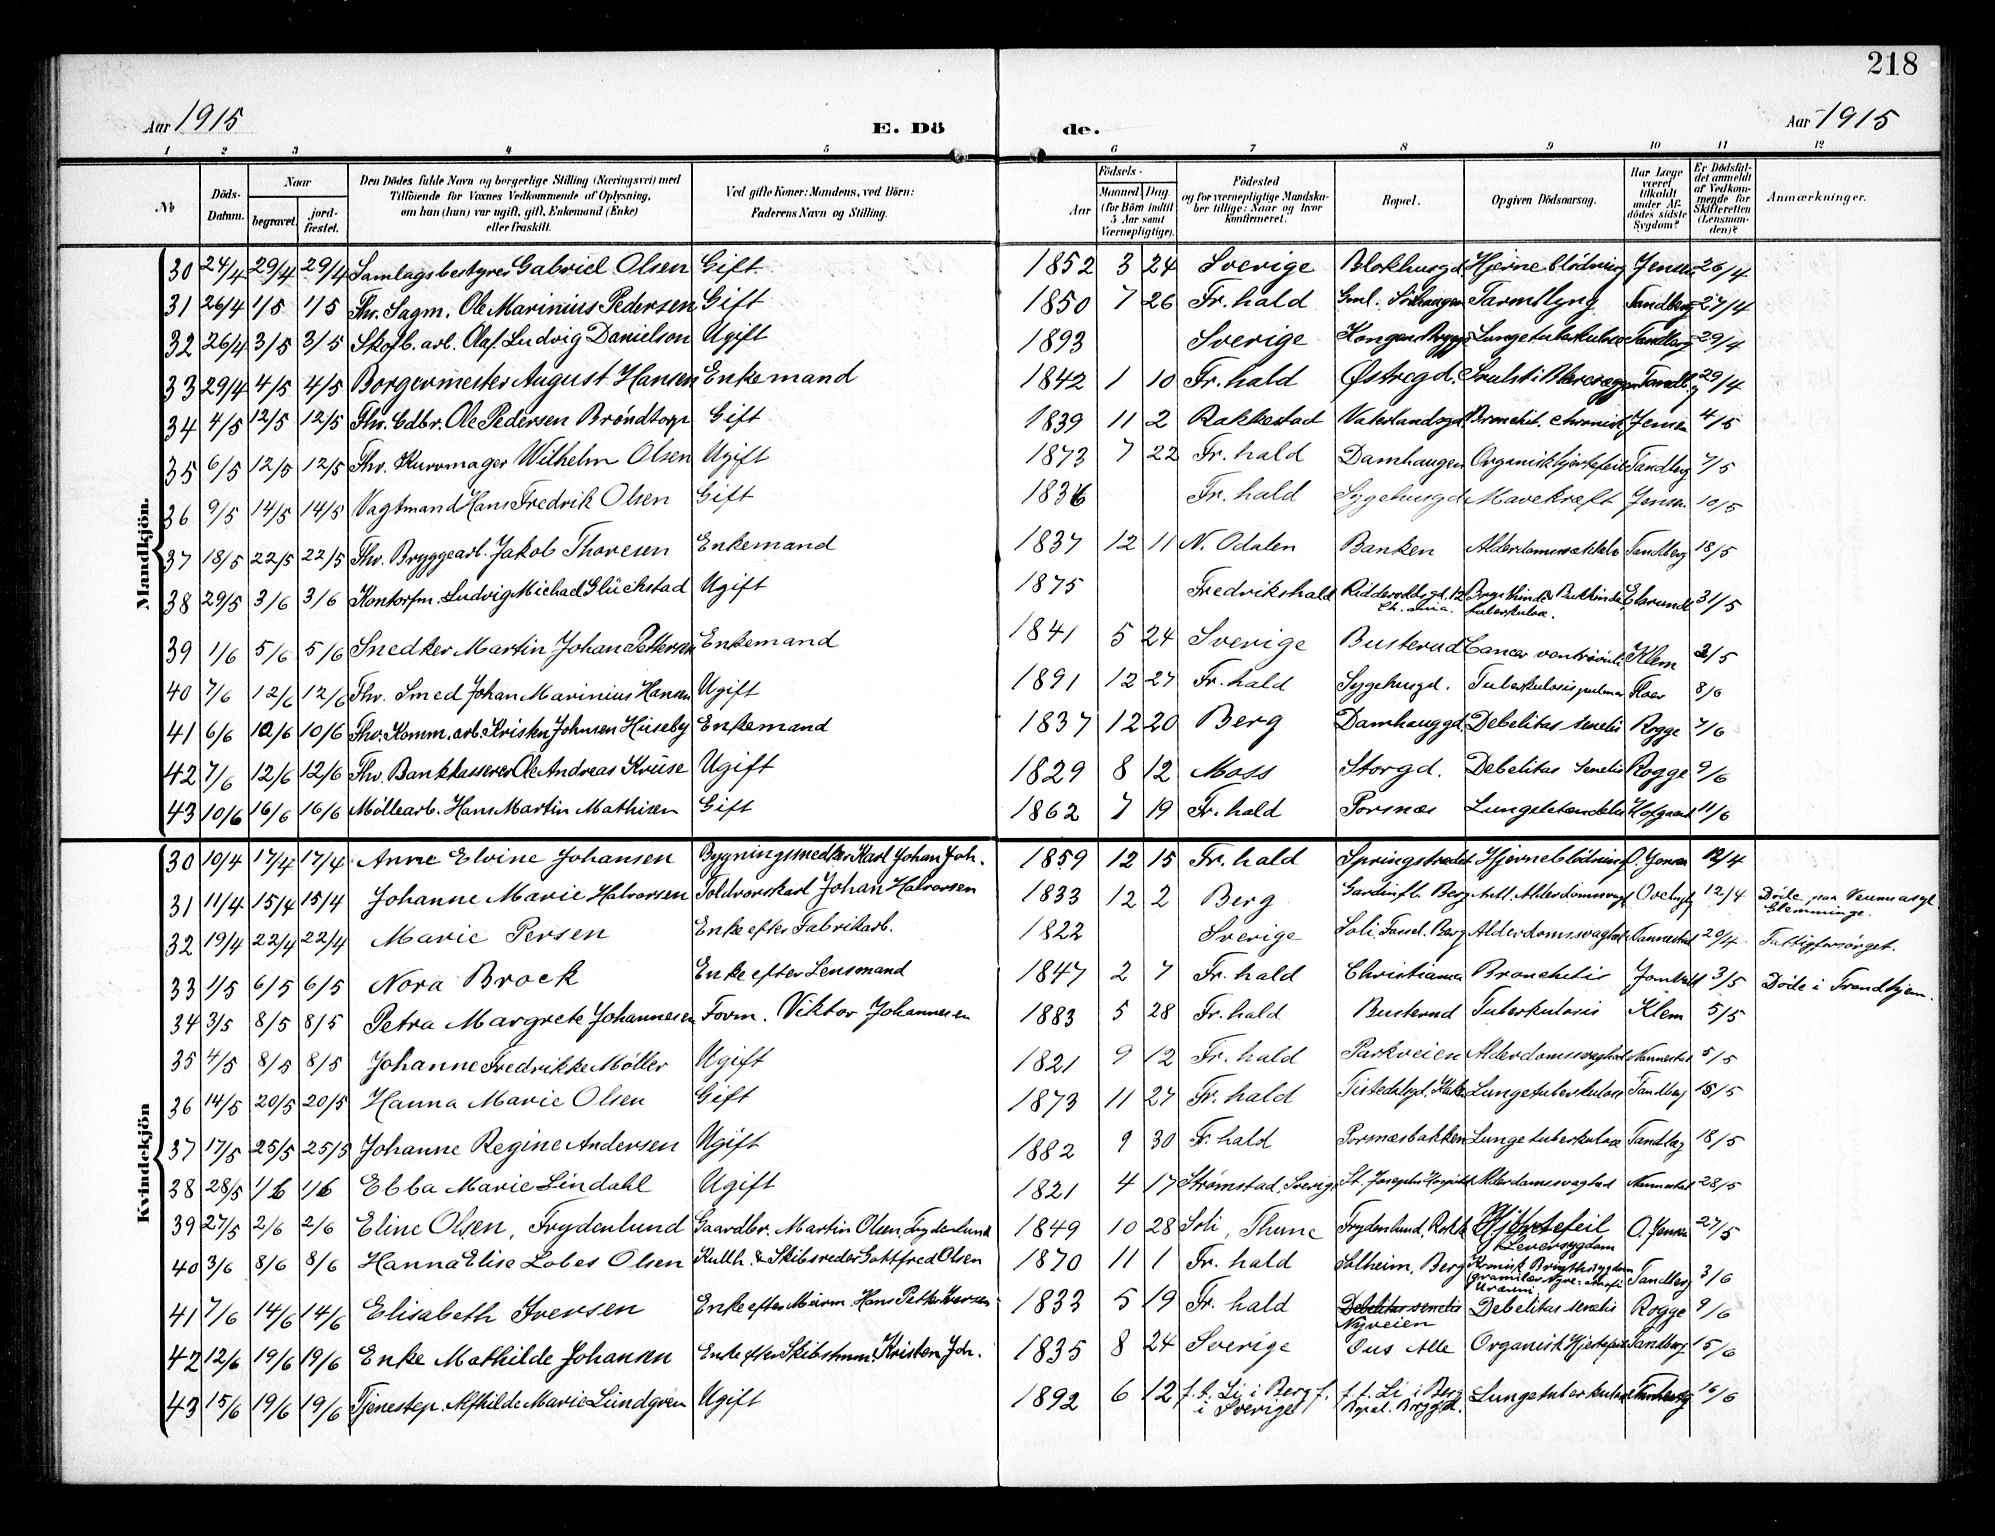 218
Aar 1915 E. Dö de. Aar 1915
1 2 3 4 5 6 7 8 9 10 11 12
№ Döds-Datum. Naar begravet. jord-fæstet. Den Dödes fulde Navn og borgerlige Stilling (Næringsvei) med Tilföiende for Voxnes Vedkommende af Oplysning, om han (hun) var ugift, gift, Enkemand (Enke) eller fraskilt. Ved gifte Koner: Mandens, ved Börn: Faderens Navn og Stilling. Födsels- Aar Maaned Dag (for Börn indtil 5 Aar samt Værnepligtige). Födested og for værnepligtige Mandska-ber tillige: Naar og hvor konfirmeret. Bopæl. Opgiven Dödsaarsag. Har Læge været tilkaldt under Af-dödes sidste Sygdom? Er Dödsfal-det anmeldt af Vedkom-mende for Skifteretten (Lensman-den)? Anmærkninger.
Mandkjön.
30 24/4 29/4 29/4 Samlagsbestyrer Gabriel Olsen Gift 1852 3 24 Sverige Blokhusgd. Hjerneblödning Jensen 26/4
31 26/4 1/5 1/5 Fhv. Sagm. Ole Marinius Pedersen Gift 1850 7 26 Fr.hald Gml. Tarmslyng Tandberg 27/4
32 26/4 3/5 3/5 Skofb. arb. Olaf Ludvig Danielson Ugift 1893 Sverige Kongens Brygge Lungetuberkulose Tandberg 29/4
33 29/4 4/5 4/5 Borgermester August Hansen Enkemand 1842 1 10 Fr.hald Østregd. Svulst i Tandbg 29/4
34 4/5 12/5 12/5 Fhv. Gdbr. Ole Pedersen Bröndtorp Gift 1839 11 2 Rakkestad Vaterlandsgd. Bronchit. chronisk Jensen 4/5
35 6/5 12/5 12/5 Fhv. Kurvmager Wilhelm Olsen Ugift 1873 7 22 Fr.hald Damhaugen Organisk hjertefeil Tandberg 7/5
36 9/5 14/5 14/5 Vagtmand Hans Fredrik Olsen Gift 1836 Fr.hald Sygehusgd Mavekræft Jensen 10/5
37 18/5 22/5 22/5 Fhv. Bryggearb. Jakob Thoresen Enkemand 1837 12 11 N. Odalen Banken Tandberg 18/5
38 29/5 3/6 3/6 Kontorfm. Ludvig Michael Glückstad Ugift 1875 Fredrikshald Ridderv 12 Ch.ania. tuberkulose. 31/5
39 1/6 5/6 5/6 Snedker Martin Johan Pettersen Enkemand 1841 5 24 Sverige Busterud Cancer ventriculi Klem 2/5
40 7/6 12/6 12/6 Fhv. Smed Johan Marinius Hansen Ugift 1891 12 27 Fr.hald Sygehusgd. Tuberkulosis pulmon 8/6
41 6/6 10/6 10/6 Fhv. Komm. arb. Kristen Johnsen Hüseby Enkemand 1837 12 20 Berg Damhauggd. Debelitas senelis Rogge 7/6
42 7/6 12/6 12/6 Fhv. Bankkasserer Ole Andreas Krüse Ugift 1829 8 12 Moss Storgd. Debelitas senelis Rogge 9/6
43 10/6 16/6 16/6 Möllearb. Hans Martin Mathisen Gift 1862 7 19 Fr.hald Porsnæs Hofgaard 11/6
Kvindekjön
30 10/4 17/4 17/4 Anne Elvine Johansen Bygningssnedker Karl Johan Joh. 1859 12 15 Fr.hald Springstrædet Hjerneblödning O. Jensen 12/4
31 11/4 15/4 15/4 Johanne Marie Halvorsen Toldvorskarl Johan Halvorsen 1833 12 2 Berg Berg Anl. Alderdomssvagh 12/4 Döde paa Veumasyl. Glemminge.
32 19/4 22/4 22/4 Marie Persen Enke efter Fabrikarb. 1822 Sverige Soli, Berg Alderdomssvaghed Nannestad 20/4 Fattigforsörget.
33 1/5 6/5 6/5 Nora Brock Enke efter Lensmand 1847 2 7 Fr.hald Christiania Bronchitis 3/5 Döde i Trondhjem.
34 3/5 8/5 8/5 Petra Margrete Johannesen Form. Viktor Johannesen 1883 5 28 Fr.hald Busterud Tuberkulosis Klem 5/5
35 4/5 8/5 8/5 Johanne Fredrikke Möller Ugift 1821 9 12 Fr.hald Parkveien Alderdomssvaghed Nannestad 5/5
36 14/5 20/5 20/5 Hanna Marie Olsen Gift 1873 11 27 Fr.hald Tistedalsgd. Lungetuberkulose Tandberg 15/5
37 17/5 25/5 25/5 Johanne Regine Andersen Ugift 1882 9 30 Fr.hald Porsnæsbakken Lungetuberkulose Tandberg 18/5
38 28/5 1/6 1/6 Ebba Marie Lindahl Ugift 1821 4 17 Strömstad, Sverige St. Josephs Hospital Alderdomssvaghed Nannestad 28/5
39 27/5 2/6 2/6 Eline Olsen, Frydenlund Gaardbr. Martin Olsen, Frydenlund 1849 10 28 Soli, Thune Frydenlund, Rokke Hjertefeil Leversygdom O. Jensen 27/5
40 3/6 8/6 8/6 Hanna Elise Lobes Olsen Kullh. & Skibsreder Gottfred Olsen 1870 11 1 Fr.hald Solheim, Berg Kronisk Brigthssygdom Tandberg 3/6
41 7/6 14/6 14/6 Elisabeth Iversen Enke efter Murm. Hans Petter Iversen 1833 5 19 Fr.hald Debelitas senelis Nyveien Debelitas senelis Rogge 9/6
42 12/6 19/6 19/6 Enke Mathilde Johansen Enke efter Skibstmm. Kristen Joh. 1835 8 24 Sverige Ous Alle Organisk Hjertefeil Tandberg 15/6
43 15/6 19/6 19/6 Tjenestep. Alfhilde Marie Lündgren Ugift 1892 6 12 f.t. Li i Berg f. i Sverige f.t. Li i Berg Bopæl. Lungetuberkulose Tandberg 16/6